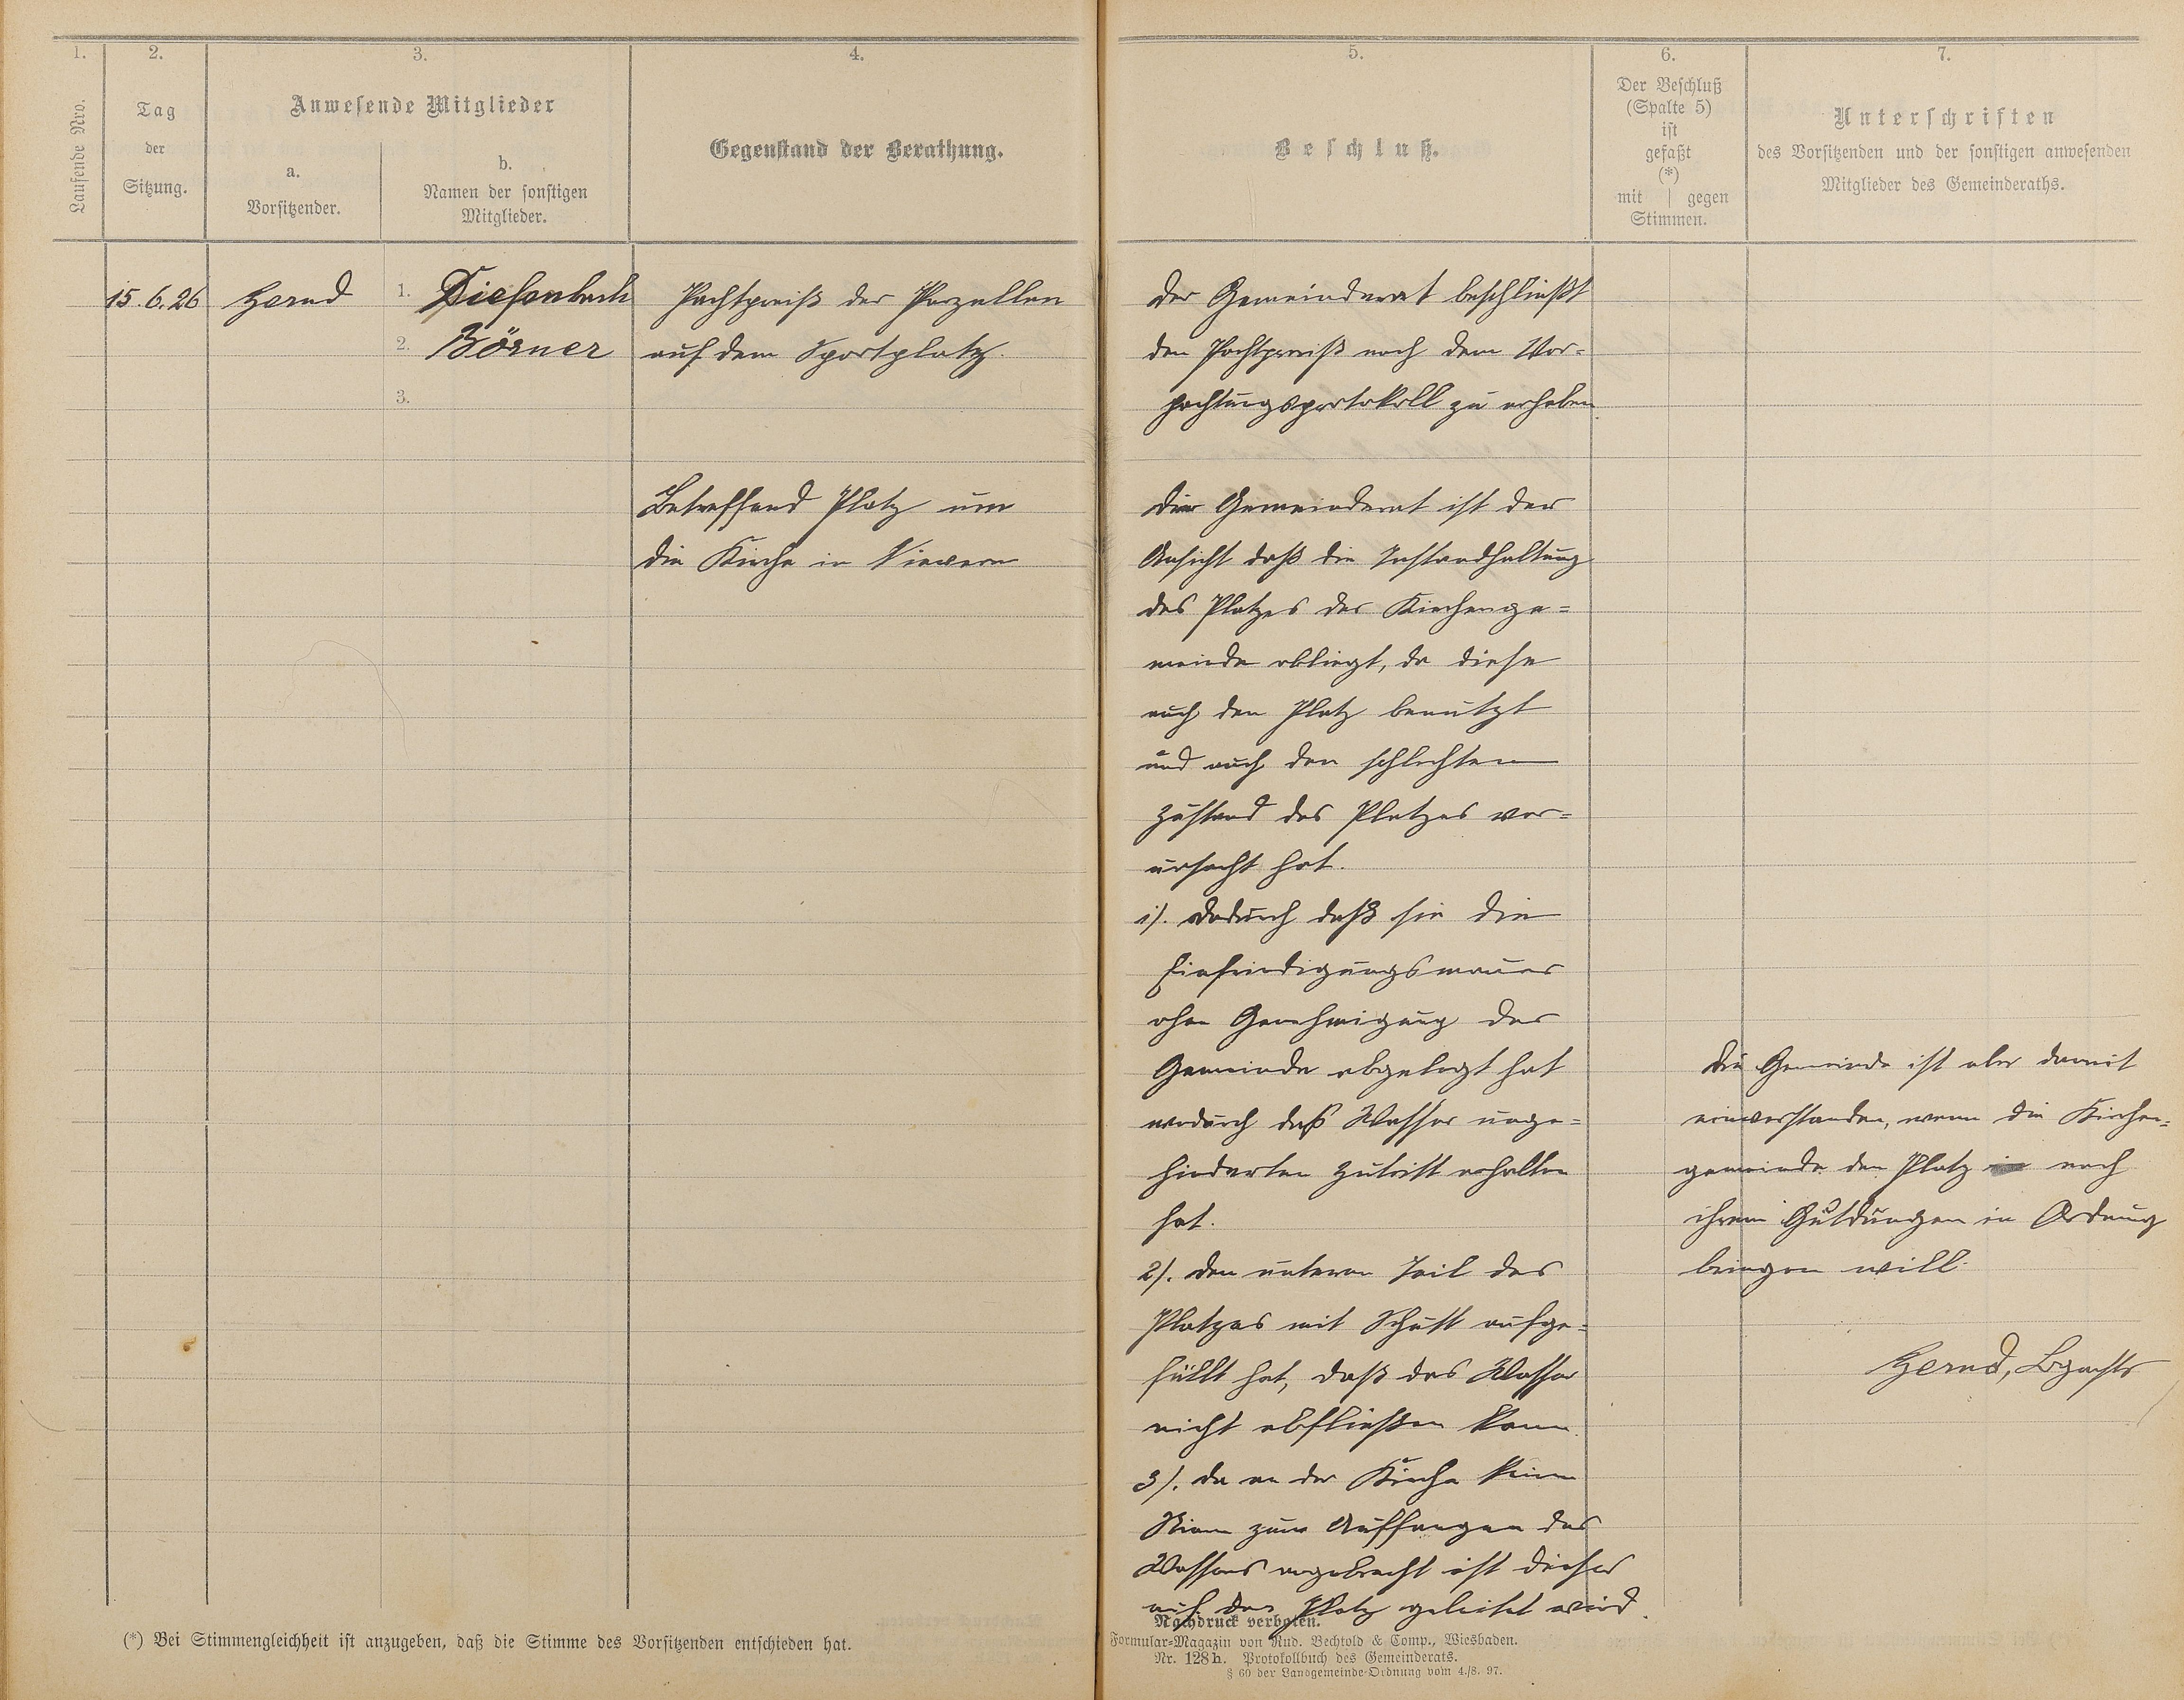 1.
2.
3.
4.
Laufende Nro.
Tag
der
Sitzung.
Anwesende Mitglieder
a.
Vorsitzender.
b.
Namen der sonstigen
Mitglieder.
Gegenstand der Berathung.
15.6.26
Hernd
1. Diefenbach
2. Börner
3.
Pachtpreiß der Parzellen
auf dem Sportplatz.
Betreffend Platz um
die Kirche in Nievern
(*) Bei Stimmengleichheit ist anzugeben, daß die Stimme des Vorsitzenden entschieden hat.
5.
6.
7.
Beschluß.
Der Beschluß
(Spalte 5)
ist
gefaßt
(*)
mit | gegen
Stimmen.
Unterschriften
des Vorsitzenden und der sonstigen anwesenden
Mitglieder des Gemeinderaths.
Der Gemeinderat beschließt
den Pachtpreiß nach dem Ver-
pachtungsprotokoll zu erheben.
Der Gemeinderat ist der
Ansicht daß die Instandhaltung
des Platzes der Kirchenge-
meinde obliegt, da diese
auch den Platz benutzt
und auch den schlechten
Zustand des Platzes ver-
ursacht hat.
1). Dadurch daß sie die
Einfriedigungsmauer
ohne Genehmigung der
Gemeinde abgelegt hat
wodurch daß Wasser unge-
hinderten Zutritt erhalten
hat.
2). Den unteren Teil des
Platzes mit Schutt aufge-
füllt hat, daß das Wasser
nicht abfließen kann.
3). Da an der Kirche keine
zum Auffangen des
Wassers angebracht ist dieses
auf den Platz geleitet wird.
Die Gemeinde ist aber damit
einverstanden, wenn die Kirchen-
gemeinde den Platz nach
ihrem Gutdünken in Ordnung
bringen will.
Hernd, Bgmstr
Nachdruck verboten.
Formular-Magazin von Rud. Bechtold & Comp., Wiesbaden.
Nr. 128h. Protokollbuch des Gemeinderats.
§ 60 der Landgemeinde-Ordnung vom 4./8. 97.